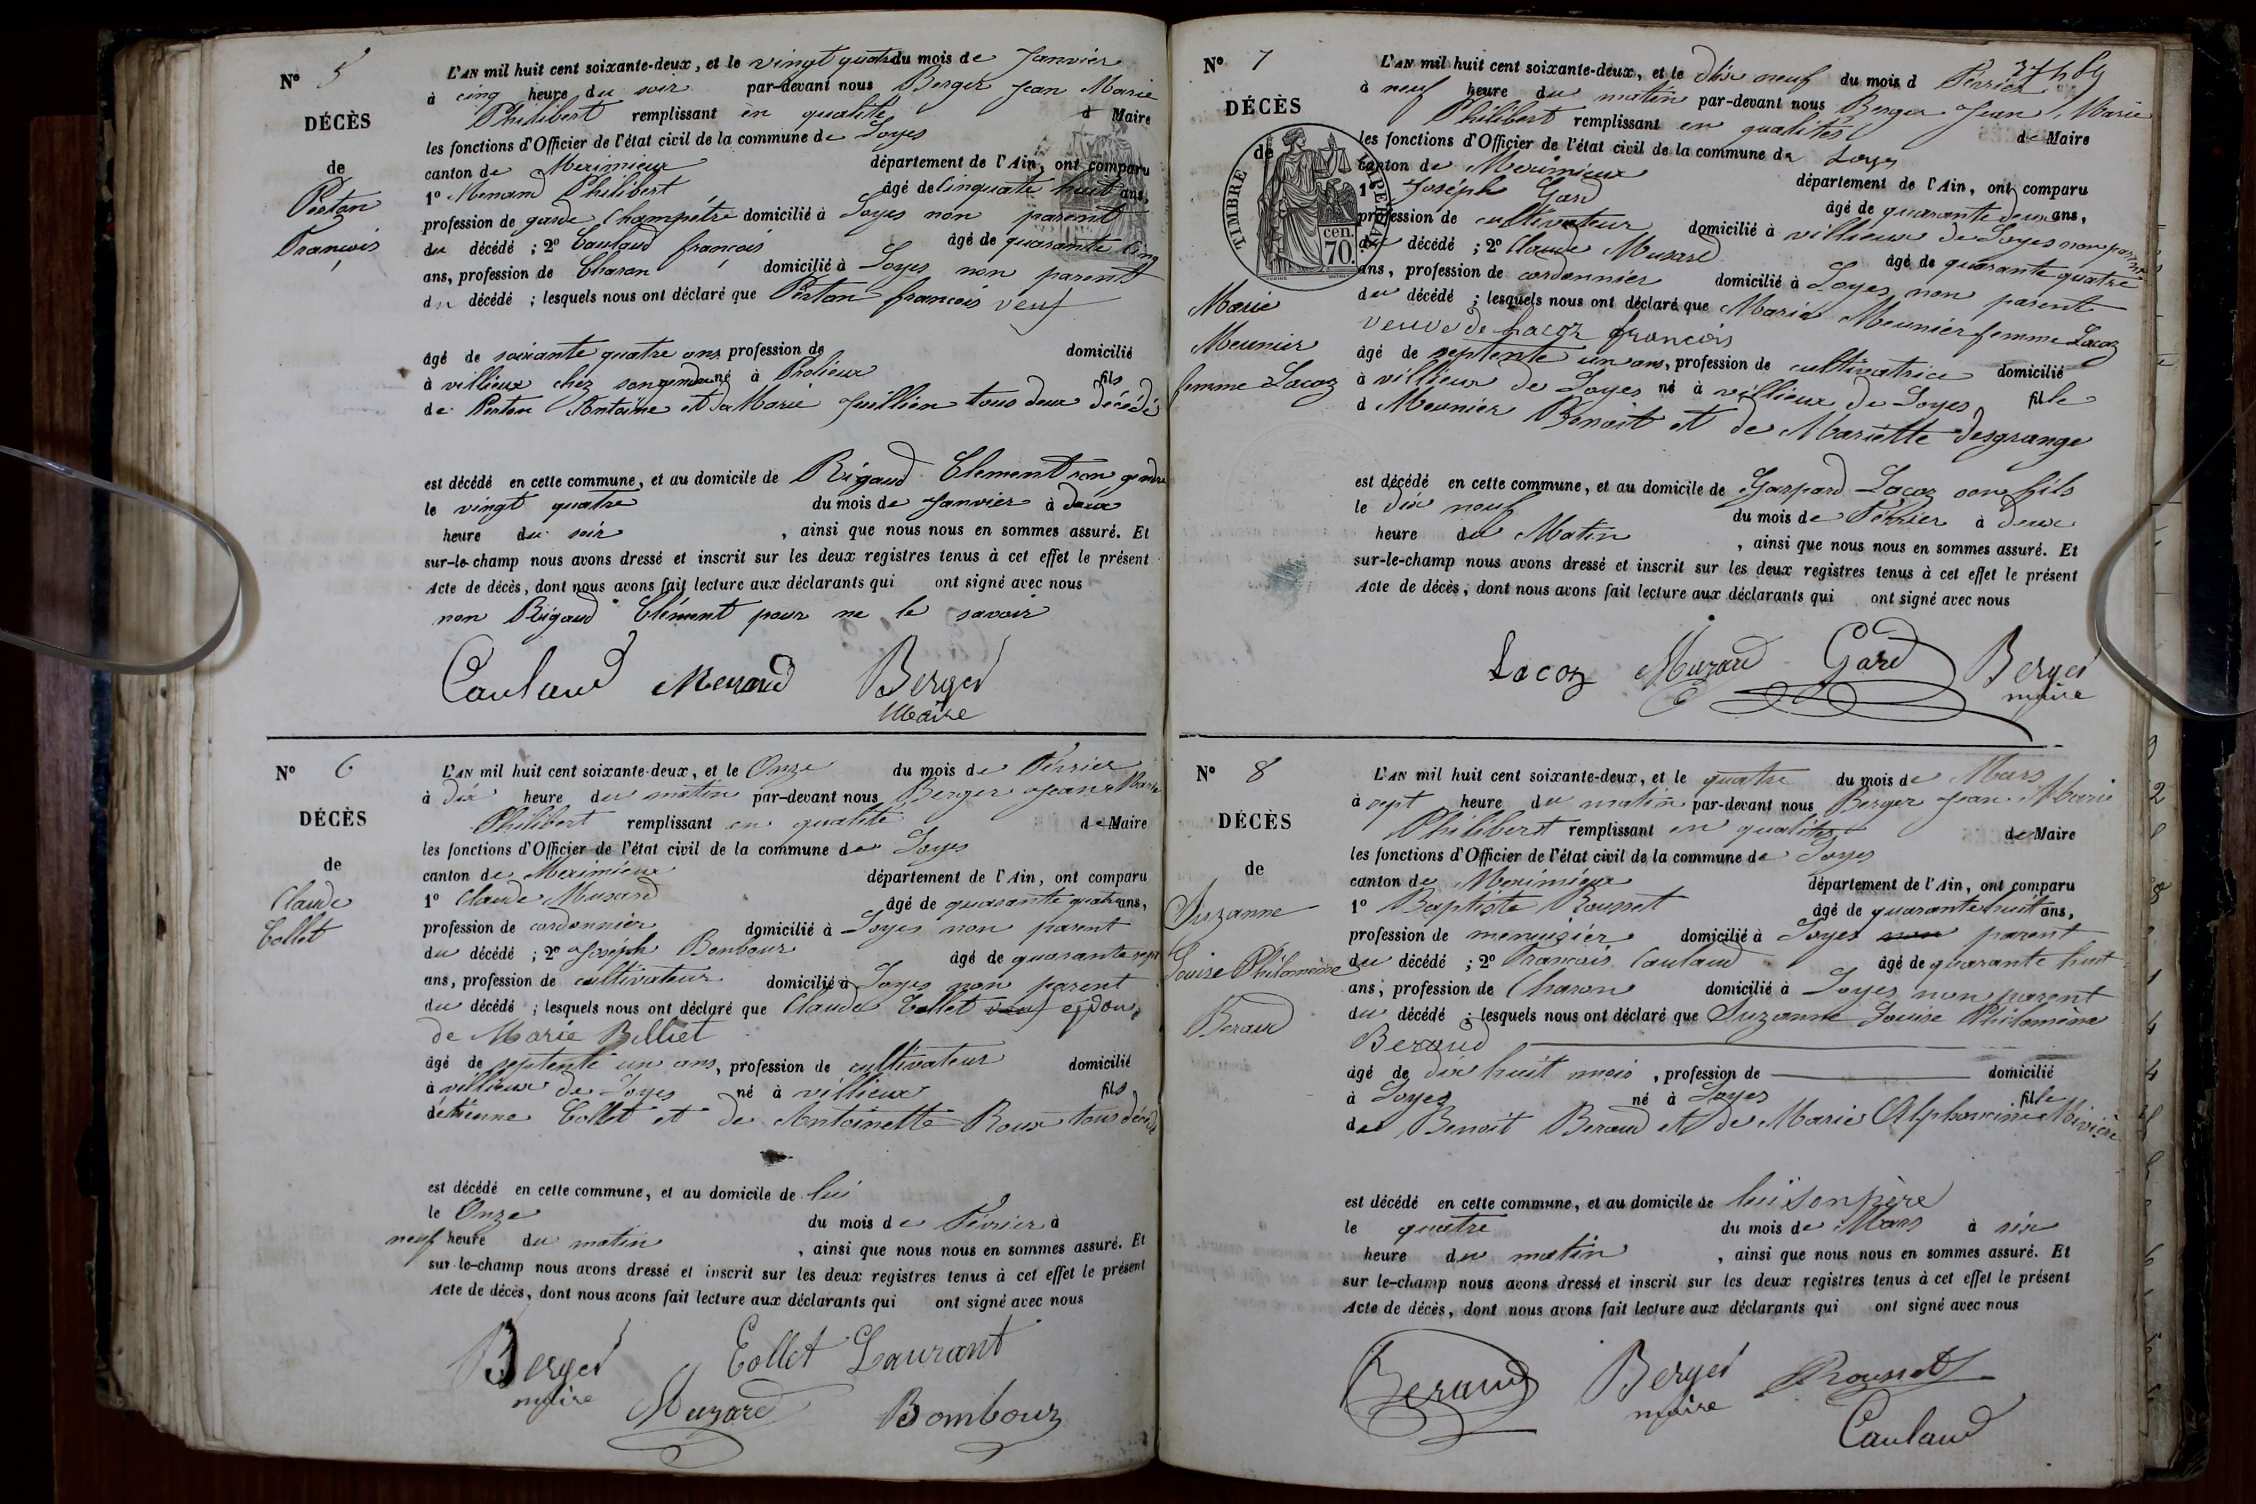 N° 5
DÉCÈS
de
Perton
François
L'AN mil huit cent soixante-deux, et le vingt quatre du mois de Janvier
à cinq heure du soir par-devant nous Berger Jean Marie
Philibert remplissant en qualité de Maire
les fonctions d'Officier de l'état civil de la commune de Loyes
canton de Meximieux département de l'Ain, ont comparu
1° Menand Philibert âgé de cinquante huit ans,
profession de garde Champêtre domicilié à Loyes non parent
du décédé ; 2° Caulaud françois âgé de quarante cinq
ans, profession de Charon domicilié à Loyes non parent
du décédé ; lesquels nous ont déclaré que Perton françois veuf
âgé de soixante quatre ans profession de domicilié
à villieux chez son gendre né à Prolieux fils
de Perton Antoine et de Marie Juillien tous deux décédé
est décédé en cette commune, et au domicile de Rigaud Clement son gendre
le vingt quatre du mois de Janvier à deux
heure du soir, ainsi que nous nous en sommes assuré. Et
sur-le-champ nous avons dressé et inscrit sur les deux registres tenus à cet effet le présent
Acte de décès, dont nous avons fait lecture aux déclarants qui ont signé avec nous
non Rigaud Clément pour ne le savoir
Caulaud Menand Berger
Maire
N° 6
DÉCÈS
de
Claude
Collet
L'AN mil huit cent soixante-deux, et le Onze du mois de Février
à dix heure du matin par-devant nous Berger Jean Marie
Philibert remplissant en qualité de Maire
les fonctions d'Officier de l'état civil de la commune de Loyes
canton de Meximieux département de l'Ain, ont comparu
1° Claude Musard âgé de quarante quatre ans,
profession de cordonnier domicilié à Loyes non parent
du décédé ; 2° Joséph Bonbour âgé de quarante sept
ans, profession de cultivateur domicilié à Loyes non parent
du décédé ; lesquels nous ont déclaré que Claude Collet veuf epoux
de Marie Billiet
âgé de septente un ans, profession de cultivateur domicilié
à villieux de Loyes né à villieux fils
d'étienne Collet et de Antoinette Roux tous décédé
est décédé en cette commune, et au domicile de lui
le Onze du mois de Février à
neuf heure du matin, ainsi que nous nous en sommes assuré. Et
sur-le-champ nous avons dressé et inscrit sur les deux registres tenus à cet effet le présent
Acte de décès, dont nous avons fait lecture aux déclarants qui ont signé avec nous
Berger Collet Laurant
maire Muzard Bombour
N° 7
DÉCÈS
de
TIMBRE IMPERIAL
cen.
70.
Marie
Meunier
femme Lacoz
L'AN mil huit cent soixante-deux, et le dix neuf du mois d Février
à neuf heure du matin par-devant nous Berger Jean Marie
Philibert remplissant en qualités de Maire
les fonctions d'Officier de l'état civil de la commune de Loyes
canton de Meximieux département de l'Ain, ont comparu
1° Joséph Gard âgé de quarante deux ans,
profession de cultivateur domicilié à villieux de Loyes non parent
du décédé ; 2° Claude Musard âgé de quarante quatre
ans, profession de cordonnier domicilié à Loyes non parent
du décédé ; lesquels nous ont déclaré que Marie Meunier femme Lacoz
veuve de Lacoz francois
âgé de septente un ans, profession de cultivatrice domicilié
à villieux de Loyes né à villieux de Loyes fille
d Meunier Benoit et de Mariette Desgrange
est décédé en cette commune, et au domicile de Gaspard Lacoz son fils
le dix neuf du mois de Février à deux
heure du Matin, ainsi que nous nous en sommes assuré. Et
sur-le-champ nous avons dressé et inscrit sur les deux registres tenus à cet effet le présent
Acte de décès, dont nous avons fait lecture aux déclarants qui ont signé avec nous
Lacoz Muzard Gard Berger
maire
N° 8
DÉCÈS
de
Suzanne
Louise Philomène
Beraud
L'AN mil huit cent soixante-deux, et le quatre du mois de Mars
à sept heure du matin par-devant nous Berger Jean Marie
Philibert remplissant en qualités de Maire
les fonctions d'Officier de l'état civil de la commune de Loyes
canton de Meximieux département de l'Ain, ont comparu
1° Baptiste Rousset âgé de quarante huit ans,
profession de menuisier domicilié à Loyes non parent
du décédé ; 2° Francois Caulaud âgé de quarante huit
ans, profession de Charon domicilié à Loyes non parent
du décédé ; lesquels nous ont déclaré que Suzanne Louise Philomène
Beraud
âgé de dix huit mois, profession de domicilié
à Loyes né à Loyes fille
de Benoit Beraud et de Marie Alphonsine
est décédé en cette commune, et au domicile de lui son père
le quatre du mois de Mars à six
heure du matin, ainsi que nous nous en sommes assuré. Et
sur le-champ nous avons dressé et inscrit sur les deux registres tenus à cet effet le présent
Acte de décès, dont nous avons fait lecture aux déclarants qui ont signé avec nous
Beraud Berger Rousset
maire Caulaud